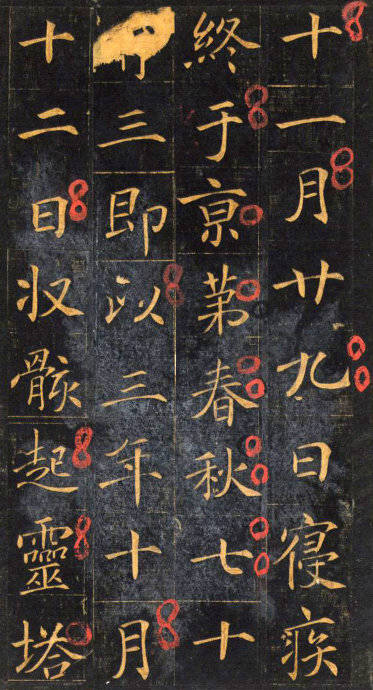 十一月廿九日寑疾
終于京苐春秋七十
三即以三年十月
十二日収骸起靈塔